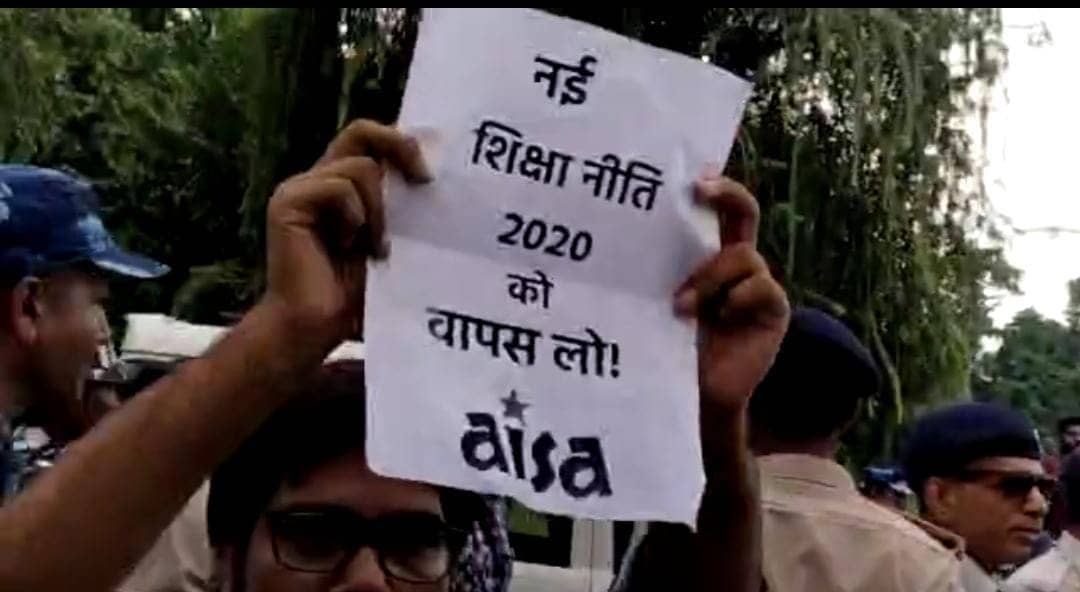 नई
शिक्षा नीति
2020
को
वापस लो!
aisa